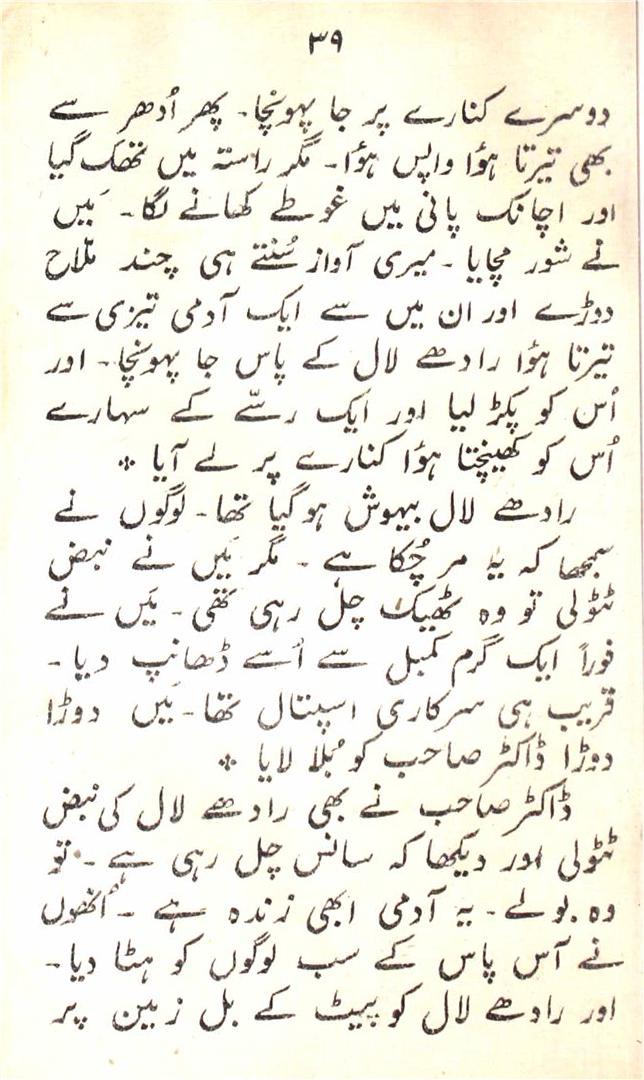 ۳۹
دوسرے کنارے پر جا پہونچا۔ پھر اُدھر سے
بھی تیرتا ہؤا واپس ہؤا۔ مگر راستہ میں تھک گیا
اور اچانک پانی میں غوطے کھانے لگا۔ مَیں
نے شور مچایا۔ میری آواز سُنتے ہی چند ملّاح
دوڑے اور ان میں سے ایک آدمی تیزی سے
تیرتا ہؤا رادھے لال کے پاس جا پہونچا۔ اور
اُس کو پکڑ لیا اور ایک رسّے کے سہارے
اُس کو کھینچتا ہؤا کنارے پر لے آیا ❖
رادھے لال بیہوش ہو گیا تھا۔ لوگوں نے
سمجھا کہ یہ مر چُکا ہے۔ مگر مَیں نے نبض
ٹٹولی تو وہ ٹھیک چل رہی تھی۔ مَیں نے
فوراً ایک گرم کمبل سے اُسے ڈھانپ دیا۔
قریب ہی سرکاری اسپتال تھا۔ مَیں دوڑا
دوڑا ڈاکٹر صاحب کو بُلا لایا ❖
ڈاکٹر صاحب نے بھی رادھے لال کی نبض
ٹٹولی اور دیکھا کہ سانس چل رہی ہے۔ تو
وہ بولے۔ یہ آدمی ابھی زندہ ہے۔ اُنھوں
نے آس پاس کے سب لوگوں کو ہٹا دیا۔
اور رادھے لال کو پیٹ کے بل زمین پر